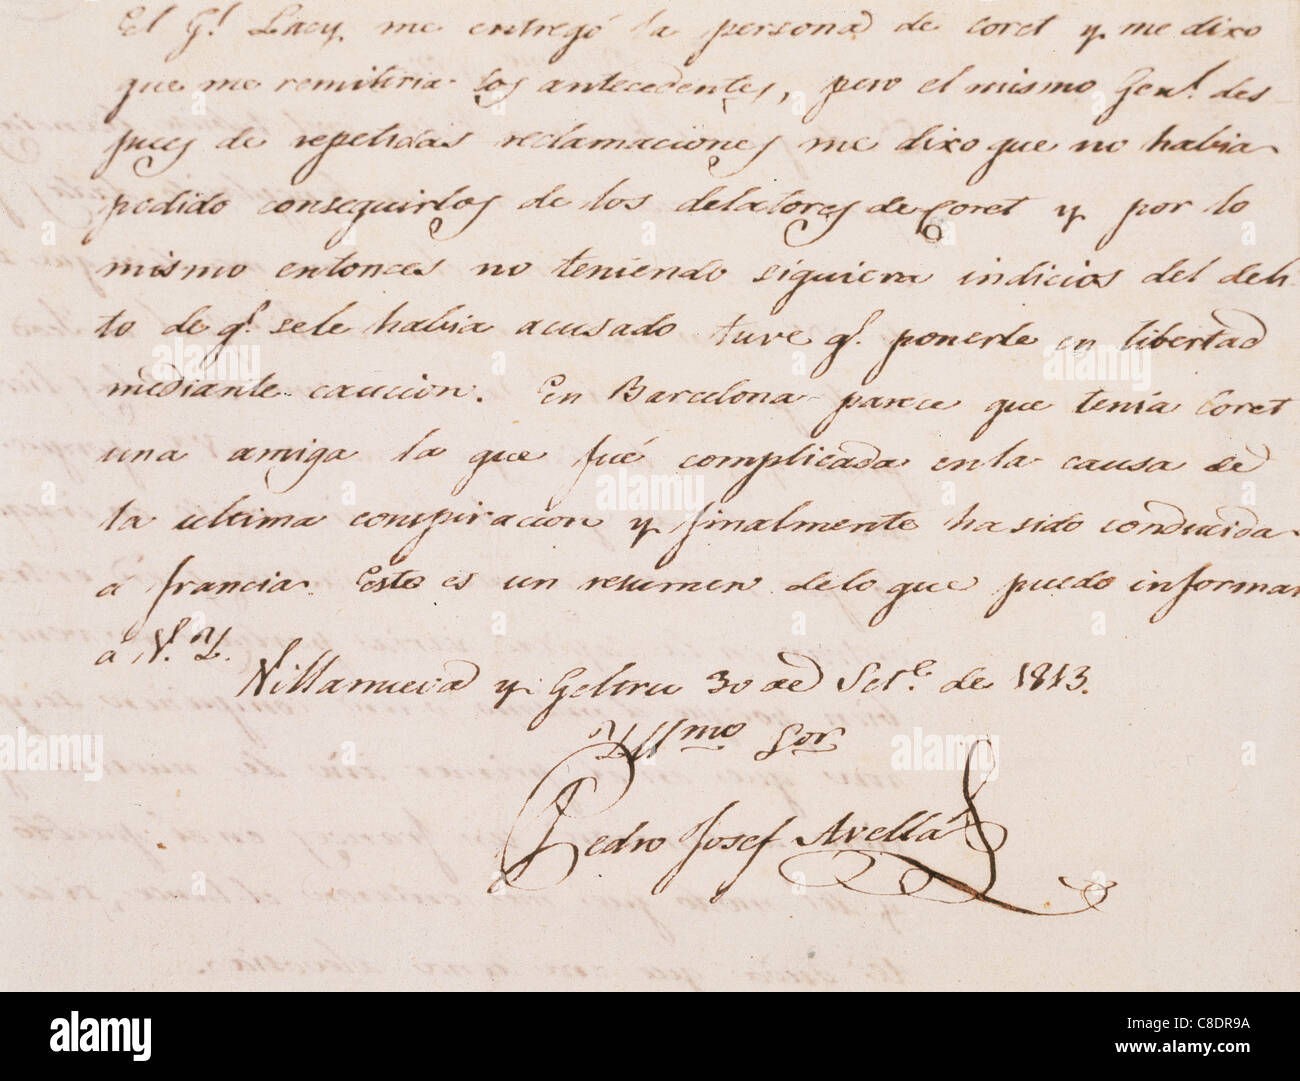 El G.l Lacy, me entregó la persona de Coret y me dixo
que me remitiria los antecedentes, pero el mismo Gen.l des
pues de repetidas reclamaciones me dixo que no habia
podido conseguirlos de los delatores de Coret y por lo
mismo entonces no teniendo siquiera indicios del deli
to de q.e se le habia acusado tuve q.e ponerle en libertad
mediante caucion. En Barcelona parece que tenía Coret
una amiga la que fué complicada en la causa de
la ultima conspiracion y finalmente ha sido conducida
á francia. Esto es un resumen de lo que puedo informar
á V. I.
Villanueva y Geltru 30 de Set.e de 1813.
Illmo Sor
Pedro Josef Avellá
alamy
Image ID: C8DR9A
www.alamy.com